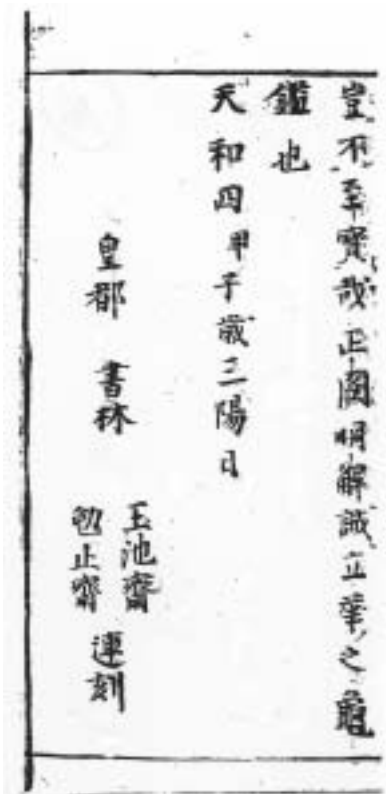 豈不至寶哉正図明解誠立華之亀
鑑也
天和四甲子歳三陽日
皇都 書林
玉池齋
勉止齋
運刻